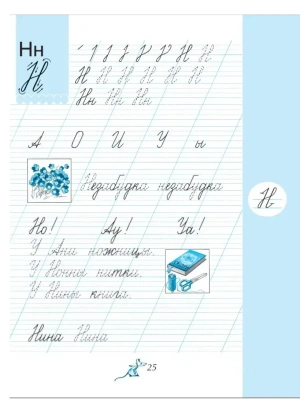 Нн
Н
Н Н
Н Н Н Н Н Н
Нн Нн Нн
А О И У ы
Незабудка незабудка
Н
Но! Ау! Уа!
У Ани ножницы.
У Нонны нитки.
У Нины книга.
Нина Нина
25